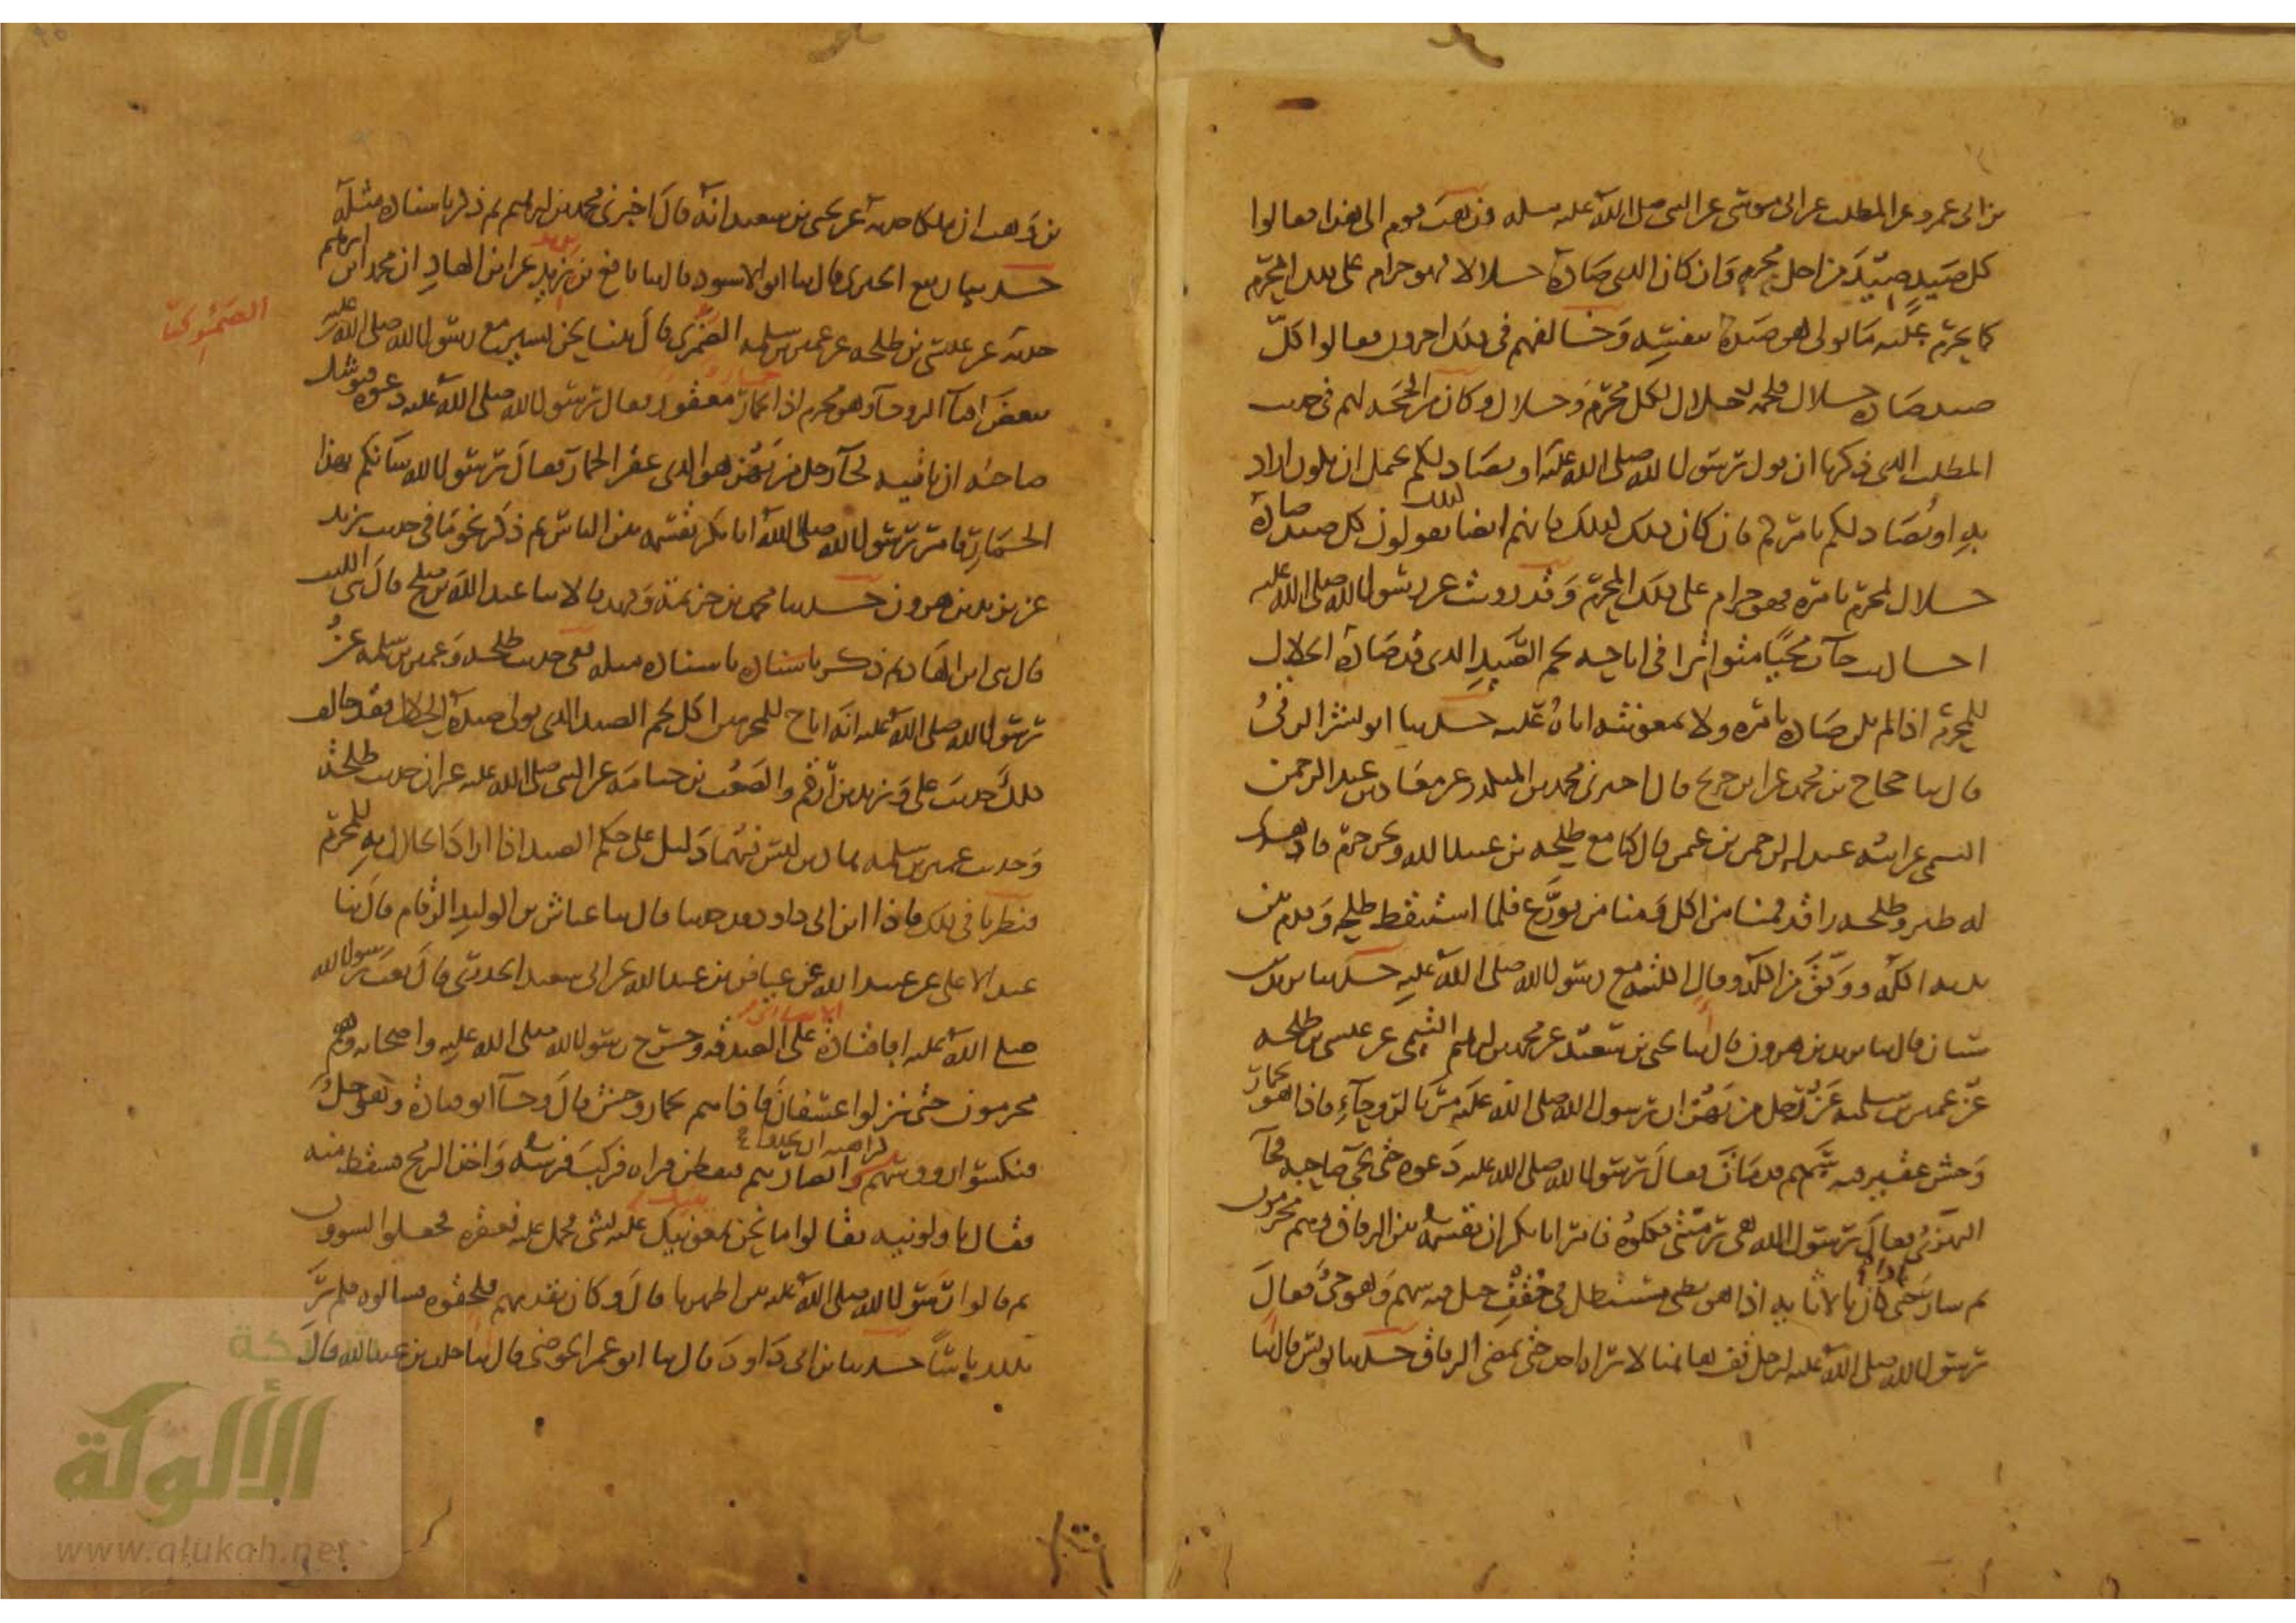 بن ابى عمرو عن المطلب عن ابى موسى عن النبى صلى الله عليه وسلم فذهب قوم الى هذا فقالوا
كل صيد صيد من اجل محرم وان كان الذى صاده حلالا فهو حرام على ذلك المحرم
كما يحرم عليه ما تولى هو صيده بنفسه وخالفهم فى ذلك اخرون فقالوا كل
صيد صاده حلال فلحمه حلال لكل محرم وحلال وكان من الحجة لهم فى حديث
المطلب الذى ذكرنا ان قول رسول الله صلى الله عليه او يصاد لكم يحتمل ان يكون اراد
به او يصاد لكم بامركم فان كان ذلك كذلك فانهم ايضا يقولون كذلك كل صيد صاده
حلال لمحرم بامره فهو حرام على ذلك المحرم وقد رويت عن رسول الله صلى الله عليه
احاديث جآت مجيا متواترا فى اباحة لحم الصيد الذى قد صاده الحلال
للمحرم اذا لم يكن صاده بامره ولا بمعونته اياه عليه حدثنا ابو بشر الرقى
قال ثنا حجاج بن محمد عن ابن جريج قال اخبرنى محمد بن المنكدر عن معاذ بن عبد الرحمن
التيمى عن ابيه عبد الرحمن بن عثمن قال كنا مع طلحة بن عبيد الله ونحن حرم فاهدى
له طير وطلحة راقد فمنا من اكل ومنا من تورع فلما استيقظ طلحة وقدم بين
يديه اكله ووفق من اكله وقال اكلته مع رسول الله صلى الله عليه حدثنا يزيد بن
سنان قال ثنا يزيد بن هرون قال انا يحيى بن سعيد عن محمد بن ابرهيم التيمى عن عيسى بن طلحة
عن عمير بن سلمة عن رجل من بهز ان رسول الله صلى الله عليه مر بالروحآء فاذا هو بحمار
وحش عقير فيه سهم قد مات فقال رسول الله صلى الله عليه دعوه حتى يجى صاحبه فجآ
البهزى فقال يرسول الله هى رميتى فكلوه فامر ابا بكر ان يقسمه بين الرفاق وهم محرمون
ثم سار حتى اذا كان بالاثاية اذا هو بظبى مستظل فى حقف جبل فيه سهم وهو حى فقال
رسول الله صلى الله عليه لرجل قف ههنا لا يراه احد حتى يمضى الرفاق حدثنا يونس قال انا
بن وهب ان ملكا حدثه عن يحيى بن سعيد انه قال اخبرنى محمد بن ابرهيم ثم ذكر باسناده مثله
حدثنا ربيع الجيزى قال ثنا ابو الاسود قال ثنا نافع بن يزيد عن ابن الهاد ان محمد ابن ابرهيم
حدثه عن عيسى بن طلحة عن عمير بن سلمة الضمرى قال بينا نحن نسير مع رسول الله صلى الله عليه
الصمرى
ببعض افنآ الروحآ وهو محرم اذا حمار معقور فقال رسول الله صلى الله عليه دعوه فيوشك
صاحبه ان ياتيه فجآ رجل من بهز هو الذى عقر الحمار فقال يرسول الله شانكم بهذا
الحمار فامر رسول الله صلى الله ابا بكر بقسمه بين الناس ثم ذكر نحو ما فى حديث يزيد
عن يزيد بن هرون حدثنا محمد بن خزيمة وفهد قالا ثنا عبد الله بن صلح قال حدثنى الليث
قال حدثنى ابن الهاد ثم ذكر باسناده مثله ففى حديث طلحة وعمير بن سلمة عن
رسول الله صلى الله عليه انه اباح للمحرمين اكل لحم الصيد الذى تولى صيده الحلال فقد خالف
ذلك حديث على وزيد بن ارقم والصعب بن جثامة عن النبى صلى الله عليه غير ان حديث طلحة
وحديث عمير بن سلمة هذين ليس فيهما دليل على حكم الصيد اذا اراد الحلال به المحرم
فنظرنا فى ذلك فاذا ابن ابى داود قد حدثنا قال ثنا عياش بن الوليد الرقام قال ثنا
عبد الاعلى عن عبيد الله عن عياض بن عبد الله عن ابى سعيد الخدرى قال بعث رسول الله
صلى الله عليه ابا قتادة على الصدقة وخرج رسول الله صلى الله عليه واصحابه وهم
محرمون حتى نزلوا عسفان فاذا هم بحمار وحش قال وجآ ابو قتادة وهو حل
فنكسوا رووسهم كراهية ان يحدوا ابصارهم فيفطن فراه فركب فرسه واخذ الرمح فسقط منه
فقال ناولونيه فقالوا ما نحن بمعينيك عليه بشى فحمل عليه فعقره فجعلوا يشوون
ثم قالوا رسول الله صلى الله عليه بين اظهرنا قال وكان تقدمهم فلحقوه فسالوه فلم ير
بذلك باسا حدثنا ابن ابى داود قال ثنا ابو عمر الحوضى قال ثنا خلد بن عبد الله قال
الألوكة
www.alukah.net